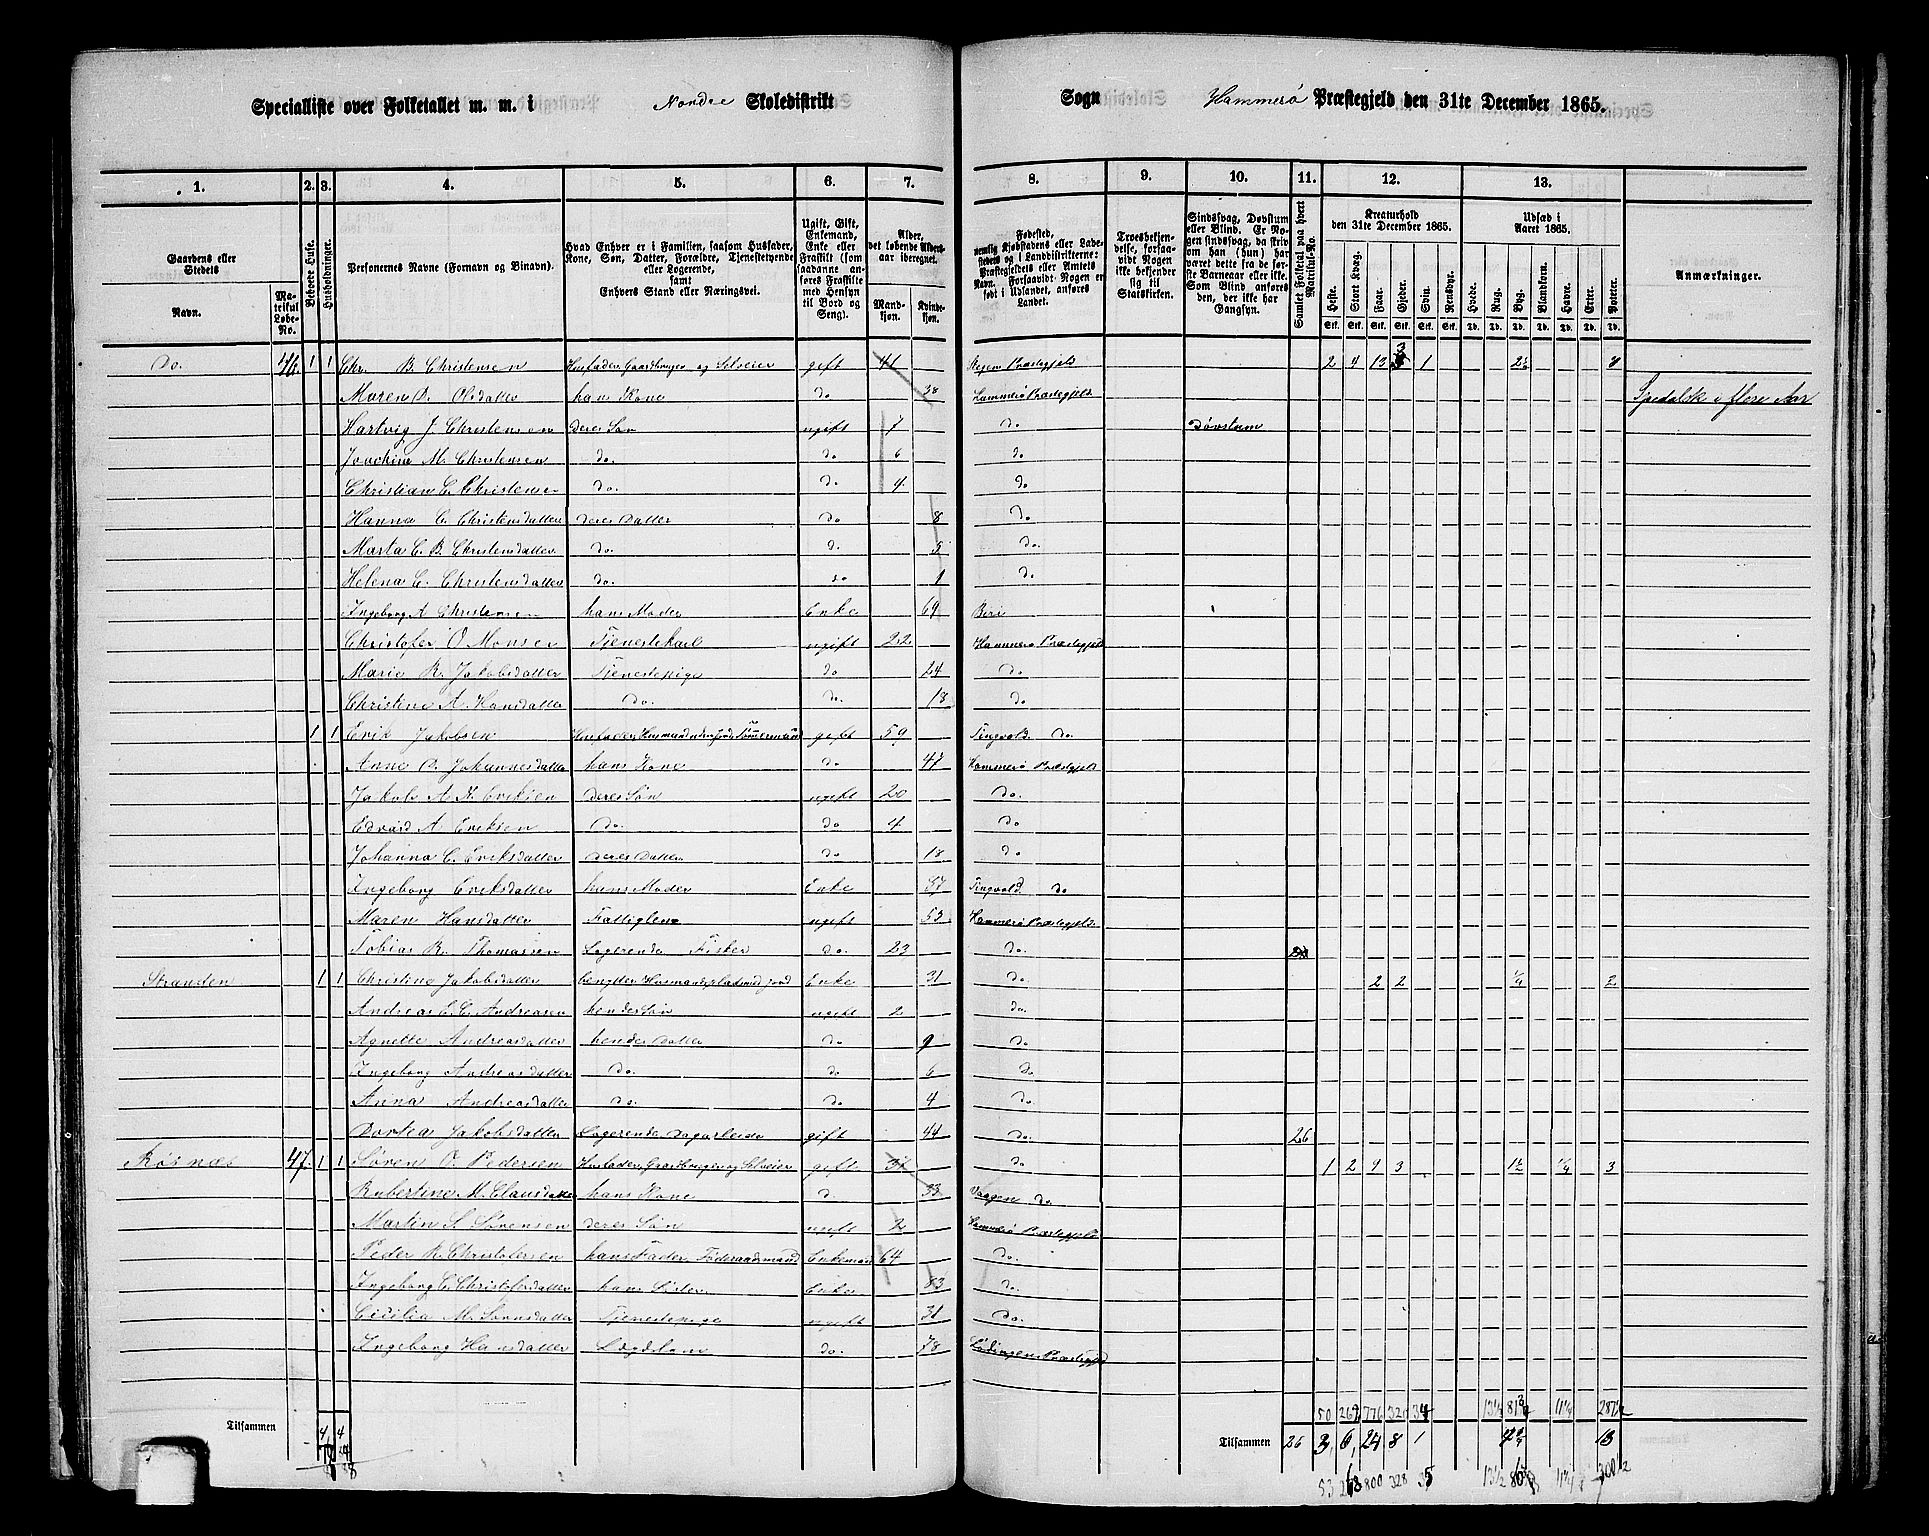 Specialliste over Folketallet m. m. i Nordre Skoledistrikt Sogn Hammerø Præstegjeld den 31te December 1865.
1. 2. 3. 4. 5. 6. 7. 8. 9. 10. 11. 12. 13.
Gaardens eller Stedets
Navn.
Matrikul Løbe-No.
Beboede Huse.
Husholdninger.
Personernes Navne (Fornavn og Binavn).
Hvad Enhver er i Familien, saasom Husfader, Kone, Søn, Datter, Forældre, Tjenestetyende eller Logerende, samt Enhvers Stand eller Næringsvei.
Ugift, Gift, Enkemand, Enke eller Fraskilt (som saadanne anføres Fraskilte med Hensyn til Bord og Seng).
Alder, det løbende Aldersaar iberegnet.
Mandkjøn. Kvindekjøn.
Fødested, nemlig Kjøbstadens eller Ladestedets og i Landdistrikterne: Præstegjeldets eller Amtets Navn. Forsaavidt Nogen er født i Udlandet, anføres Landet.
Troesbekjendelse, forsaavidt Nogen ikke bekjender sig til Statskirken.
Sindssvag, Døvstum eller Blind. Er Nogen sindssvag, da skriv om han (hun) har været dette fra de første Barneaar eller ikke. Som Blind anføres den, der ikke har Gangsyn.
Samlet Folketal paa hvert Matrikul-No.
Kreaturhold den 31te December 1865.
Heste. Stort Kvæg. Faar. Gjeder. Svin. Rensdyr.
Udsæd i Aaret 1865.
Hvede. Rug. Byg. Blandkorn. Havre. Erter. Poteter.
Anmærkninger.
Do. 46 1 1 Chr. B. Christensen Husfader, Gaardbruger og Selveier gift 41 Stegen Præstegjeld 2 4 13 1 8
Maren Olsdatter hans Kone do 38 Hammerø Præstegjeld Spedalsk i flere Aar
Hartvig J. Christensen deres Søn ugift 7 do Døvstum
Joachim M. Christensen do. do 6 do
Christian C. Christensen do. do 4 do
Hanna C. Christensdatter deres Datter do 8 do
Marta C. B. Christensdatter do. do. 5 do.
Helena C. Christensdatter do. do 1 do
Ingeborg A Christensen hans Moder Enke 69
Christofer O Monsen Tjenestekarl ugift 22 Hammerø Præstegjeld
Marie R. Jakobsdatter Tjenestepige do 24 do
Christine A. Hansdatter do. do. 18 do
1 1 Erik Jakobsen Husfader Husmand uden Jord, Tømmermand gift 59 Tingvold do.
Anne Johannesdatter hans Kone do 47 Hammerø Præstegjeld
Jakob A. K. Eriksen deres Søn ugift 20 do.
Edvard A Eriksen do. do 4 do
Johanna C. Eriksdatter deres Datter do 18 do
Ingeborg Eriksdatter hans Moder Enke Tingvold do
Maren Hansdatter Fattiglem ugift 53 Hammerø Præstegjeld
Tobias R. Thomassen Logerende Fisker do. 23 do.
Stranden 1 1 Christine Jakobsdatter benytter Husmandsplads med jord Enke 31 do 2 2 1/4 2
Andreas C. C. Andreasen hendes Søn ugift 2 do.
Agnette Andreasdatter hendes Datter do 9 do
Ingeborg Andreasdatter do. do 6 do
Anna Andreasdatter do. do 4 do
Dortea Jakobsdatter Logerende Dagarbeide gift 44 do. 26
Røsnæs 47 1 1 Søren Pedersen Husfader, Gaardbruger og Selveier gift 31 do 1 2 9 3 1½ 1/4 3
Rubertine M. Clausdatter hans Kone do. 33 Vaagen do.
Martin S. Sørensen deres Søn ugift 2 Hammerø Præstegjeld
Peder R. Christofersen hans Fader Føderaadsmand Enkemand 64 do.
Ingeborg C. Christofersdatter hans Søster Enke 83 do.
Cicilia M. Sørnsdatter Tjenestepige ugift 31 do.
Ingeborg Hansdatter Lægdslem do. 78 Lødingens Præstegjeld
50 269 776 320 34 13½ 11¼ 287½
Tilsammen 4 4 Tilsammen 26 3 6 24 8 1 13
53 800 328 35 13½ 11¼ 300½